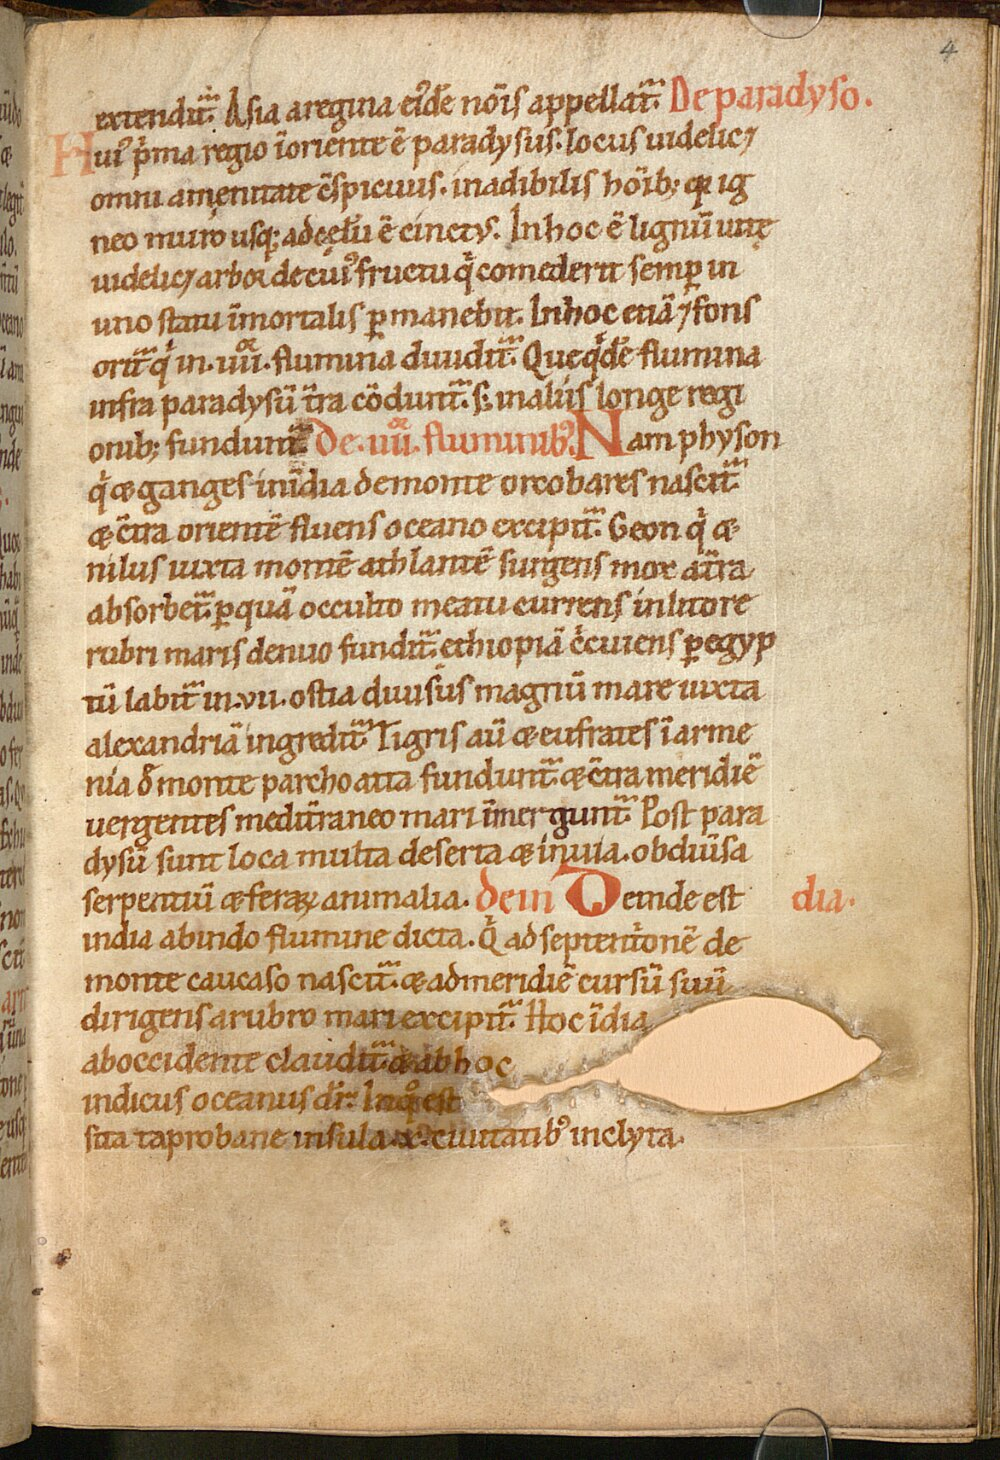 4
extendit᷑. Asia a regina ei᷒dē nōis appellat᷑. De paradyso.
Hui᷒ p̄ma regio ī oriente ē paradysus. locus uidelicꝫ
omni amenitate c̄spicuus. inadibilis hōib; q̇ ig
neo muro usq; ad cęlū ē cinctꝰ. In hoc ē lignū uitę
uidelicꝫ arbor de cuiꝰ fructu q̇ comederit semp̲ in
uno statu īmortalis p̲manebit. In hoc etiā ⁊ fons
orit᷑ q̇ in .iiii. flumina diuidit᷑. Que q̇dē flumina
infra paradysū t̄ra cōdunt᷑. s; in aliis longe regi
onib; fundunt᷑. De .iiii. fluminibꝰ. Nam physon
q̇ & ganges in īdia de monte orcobares nascit᷑
& c̄tra orientē fluens oceano excipit᷑. Geon q̇ &
nilus iuxta montē athlantē surgens mox a t̄ra
absorbet᷑. p̲ quā occulto meatu currens in litore
rubri maris denuo fundit᷑. ethiopiā c̄cuiens p̲ egyp
tū labit᷑ in .vii. ostia diuisus magnū mare iuxta
alexandriā ingredit᷑. Tigris aū & eufrates ī arme
nia ō monte parchoatta fundunt᷑. & c̄tra meridiē
uergentes medit̄raneo mari īmergunt᷑. Post para
dysū sunt loca multa deserta & inuia. ob diūsa
serpentiū & feraꝝ animalia. de in Deinde est dia.
india ab indo flumine dicta. Q̇ ad septent̓onē de
monte caucaso nascit᷑. & ad meridiē cursū suū
dirigens a rubro mari excipit᷑. Hoc īdia
ab occidente claudit᷑. & ab hoc
indicus oceanus dr̄. In q̇ est
sita taprobane insula .x. ciuitatibꝰ inclyta.